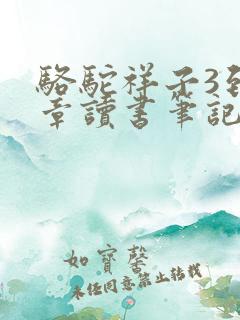 駱駝祥子3到
章讀書筆記
如寶馨
未经同意禁止转载